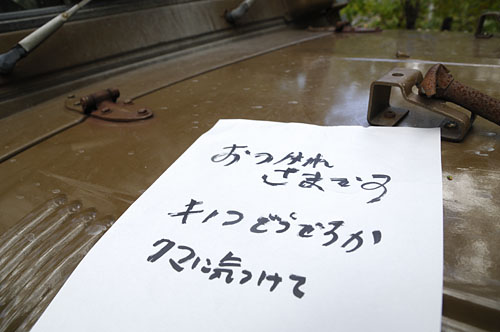 おつかれ
さまです
キノコどうだろか
クマに気つけて